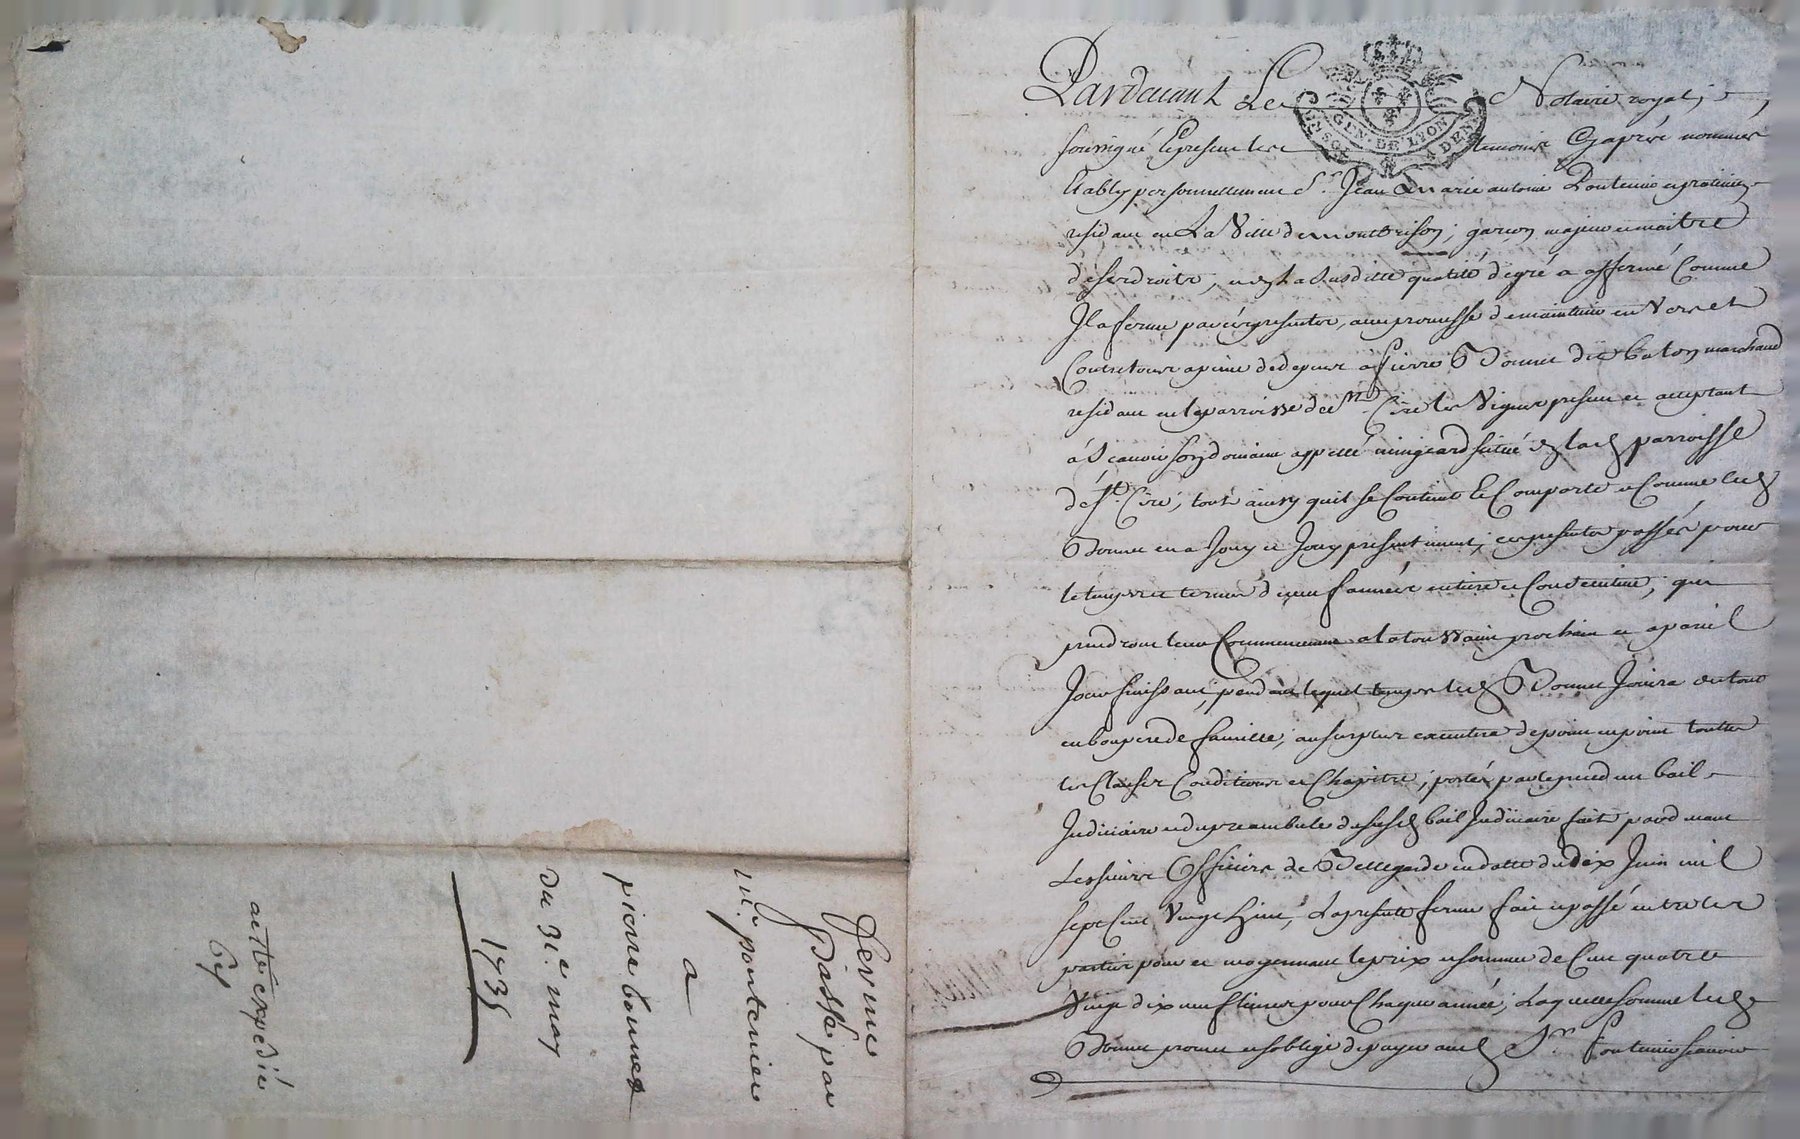 Pardevant Le Notaire royal,
GEN. DE LYON
4 DEN
soussigné Et presents les temoins Cy apres nommés
Etably personnellement Sr. Jean Marie antoine Pontenier
residant en La Ville de montbrison, garçon majeur et maitre
de ses droits, en La Susditte qualité de gré a affermé Comme
Il afferme par ces presentes, avec promesse de maintenir en Vers et
Contre tous a peine de depens a pierre Bonnet dit baton marchand
residant en la parroisse de St. Cire les Vignes present et acceptant
á Scavoir son domaine appellé situé en lad parroisse
de St. Cire, tout ainsy quil se Contient Et Comporte et Comme led
Bonnet en a Jouy et Jouy presentement, ces presentes passées pour
le temps et terme de neuf années entieres et Consecutives, qui
prendront leur Commencement a la toussaint prochain et a pareil
Jour finissant, pendant lequel temps led Bonnet Jouira du tout
en bon pere de famille, au surplus executera de point en point touttes
les Clauses Conditions et Chapitres, portés par le precedent bail
Judiciaire et du preambule dud bail Judiciaire fait pardevant
Les sieurs Officiers de Bellegarde en datte du dix Juin mil
sept Cent Vingt huit, La presente ferme fait et passé entre les
parties pour et moyennant le prix et somme de Cent quatre
Vingt dix neuf livres pour Chaque année, Laquelle somme led
Bonnet promet et soblige de payer aud Sr. Pontenier scavoir
ferme
passée par
mr. pontenier
a
pierre bonnet
du 31e may
1735
acte expedié